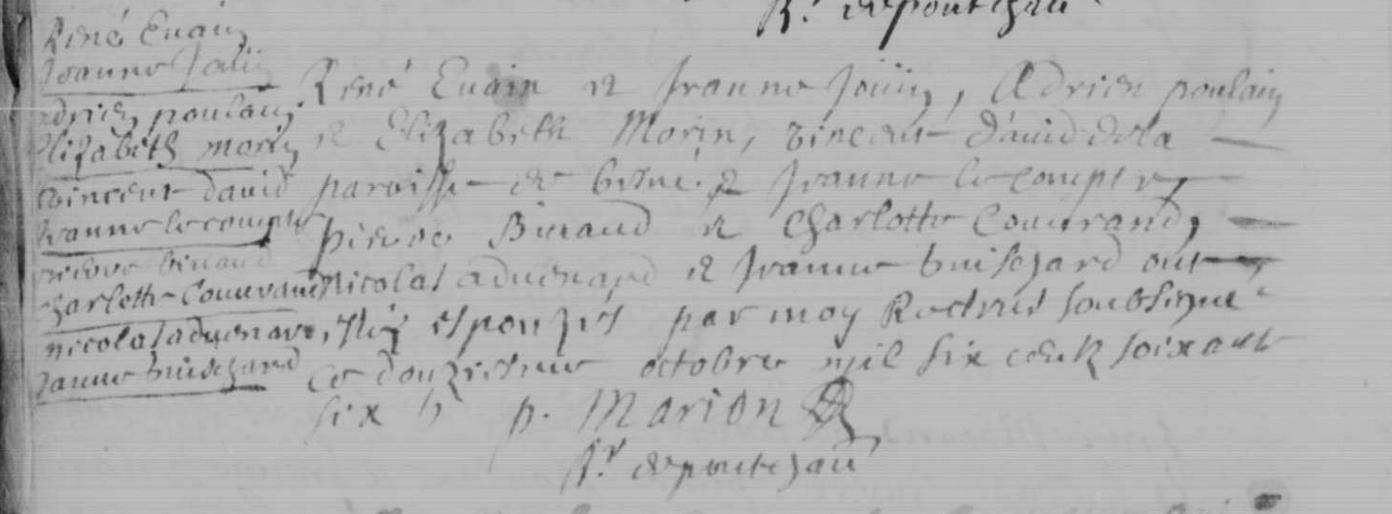 R. depontchau
René Euain
Jeanne Jouin
Adrien poulain
Elizabeth morin
vincent david
Jeanne lecompte
pierre binaud
charlotte Couurand
nicolas aduenard
Janne buischard
René Euain et Jeanne Jouin, Adrien poulain
et Elizabeth Morin, vincent David dela
paroisse de berné et Jeanne lecompte,
pierre Binaud et Charlotte Couurand,
nicolas aduenard et Jeanne buischard ont
esté espouzés par moy Recteur soubsigné
ce douziesme octobre mil six centz soixante
six p. Marion
Rr depontchau